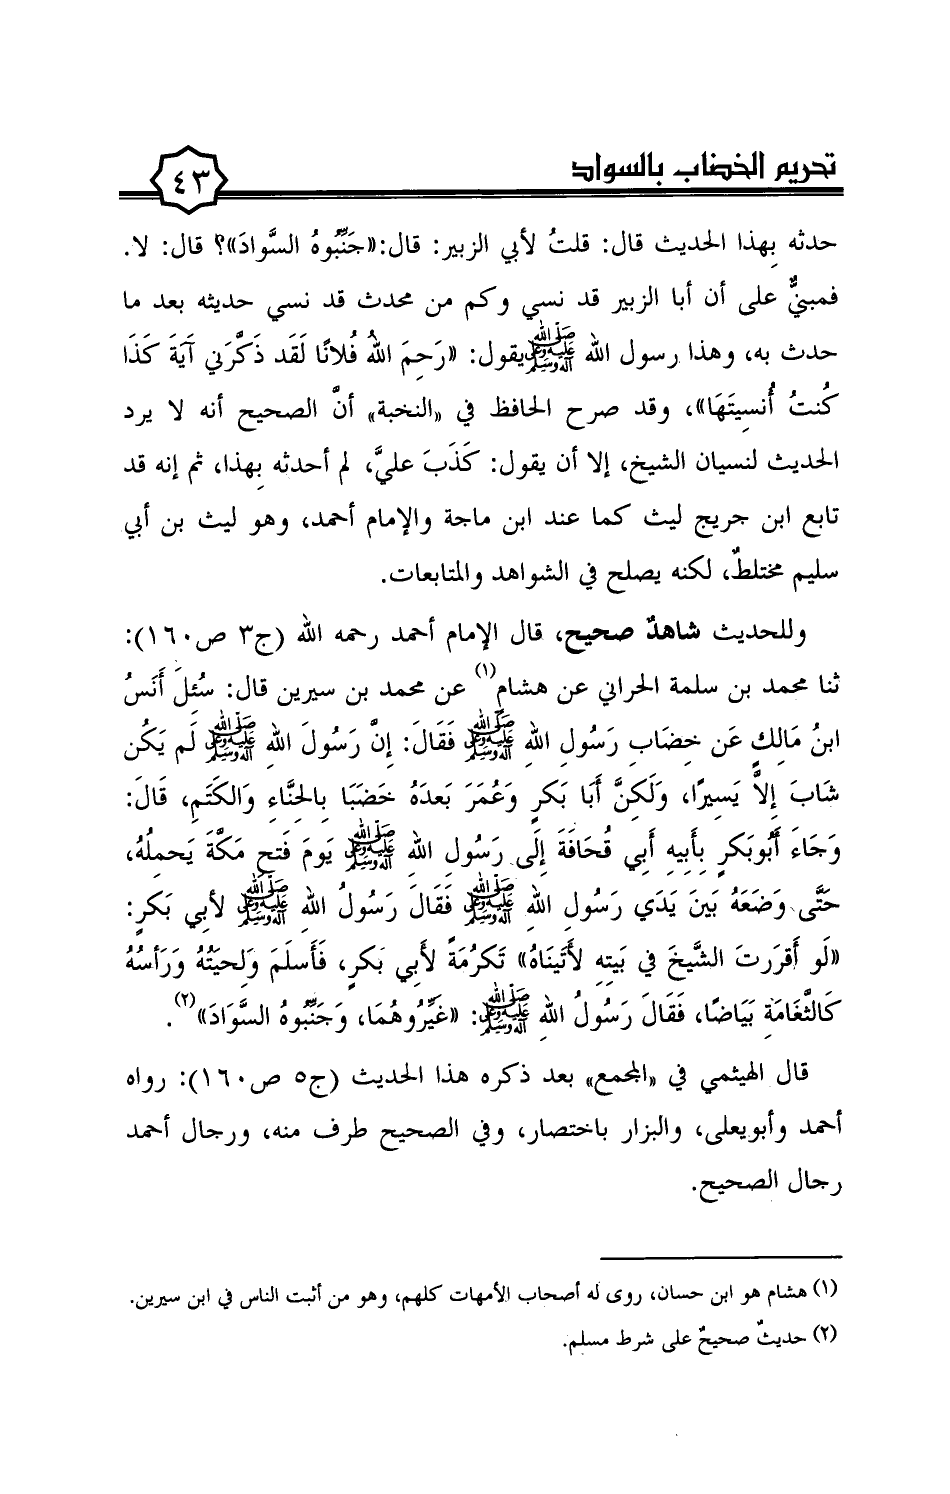 تحريم الخضاب بالسواد
٤٣
حدثه بهذا الحديث قال: قلتُ لأبي الزبير: قال:«جَنِّبُوهُ السَّوادَ»؟ قال: لا.
فمبنيٌّ على أن أبا الزبير قد نسي وكم من محدث قد نسي حديثه بعد ما
حدث به، وهذا رسول الله ﷺ يقول: «رَحِمَ اللهُ فُلانًا لَقَد ذَكَّرَني آيَةَ كَذَا
كُنتُ أُنسِيتَهَا»، وقد صرح الحافظ في «النخبة» أنَّ الصحيح أنه لا يرد
الحديث لنسيان الشيخ، إلا أن يقول: كَذَبَ عليَّ، لم أحدثه بهذا، ثم إنه قد
تابع ابن جريج ليث كما عند ابن ماجة والإمام أحمد، وهو ليث بن أبي
سليم مختلطٌ، لكنه يصلح في الشواهد والمتابعات.
وللحديث شاهدٌ صحيح، قال الإمام أحمد رحمه الله (ج٣ ص١٦٠):
ثنا محمد بن سلمة الحراني عن هشام(١) عن محمد بن سيرين قال: سُئِلَ أَنَسُ
ابنُ مَالِكٍ عَن خِضَابِ رَسُولِ اللهِ ﷺ فَقَالَ: إِنَّ رَسُولَ اللهِ ﷺ لَم يَكُن
شَابَ إِلاَّ يَسِيرًا، وَلَكِنَّ أَبَا بَكرٍ وَعُمَرَ بَعدَهُ خَضَبَا بِالحِنَّاءِ وَالكَتَمِ، قَالَ:
وَجَاءَ أَبُوبَكرٍ بِأَبِيهِ أَبِي قُحَافَةَ إِلَى رَسُولِ اللهِ ﷺ يَومَ فَتحِ مَكَّةَ يَحمِلُهُ،
حَتَّى وَضَعَهُ بَينَ يَدَي رَسُولِ اللهِ ﷺ فَقَالَ رَسُولُ اللهِ ﷺ لأبي بَكرٍ:
«لَو أَقرَرتَ الشَّيخَ في بَيتِهِ لأَتَينَاهُ» تَكرُمَةً لأَبي بَكرٍ، فَأَسلَمَ وَلِحيَتُهُ وَرَأسُهُ
كَالثَّغَامَةِ بَيَاضًا، فَقَالَ رَسُولُ اللهِ ﷺ: «غَيِّرُوهُمَا، وَجَنِّبُوهُ السَّوَادَ»(٢).
قال الهيثمي في «المجمع» بعد ذكره هذا الحديث (ج٥ ص١٦٠): رواه
أحمد وأبويعلى، والبزار باختصار، وفي الصحيح طرف منه، ورجال أحمد
رجال الصحيح.
(١) هشام هو ابن حسان، روى له أصحاب الأمهات كلهم، وهو من أثبت الناس في ابن سيرين.
(٢) حديثٌ صحيحٌ على شرط مسلم.